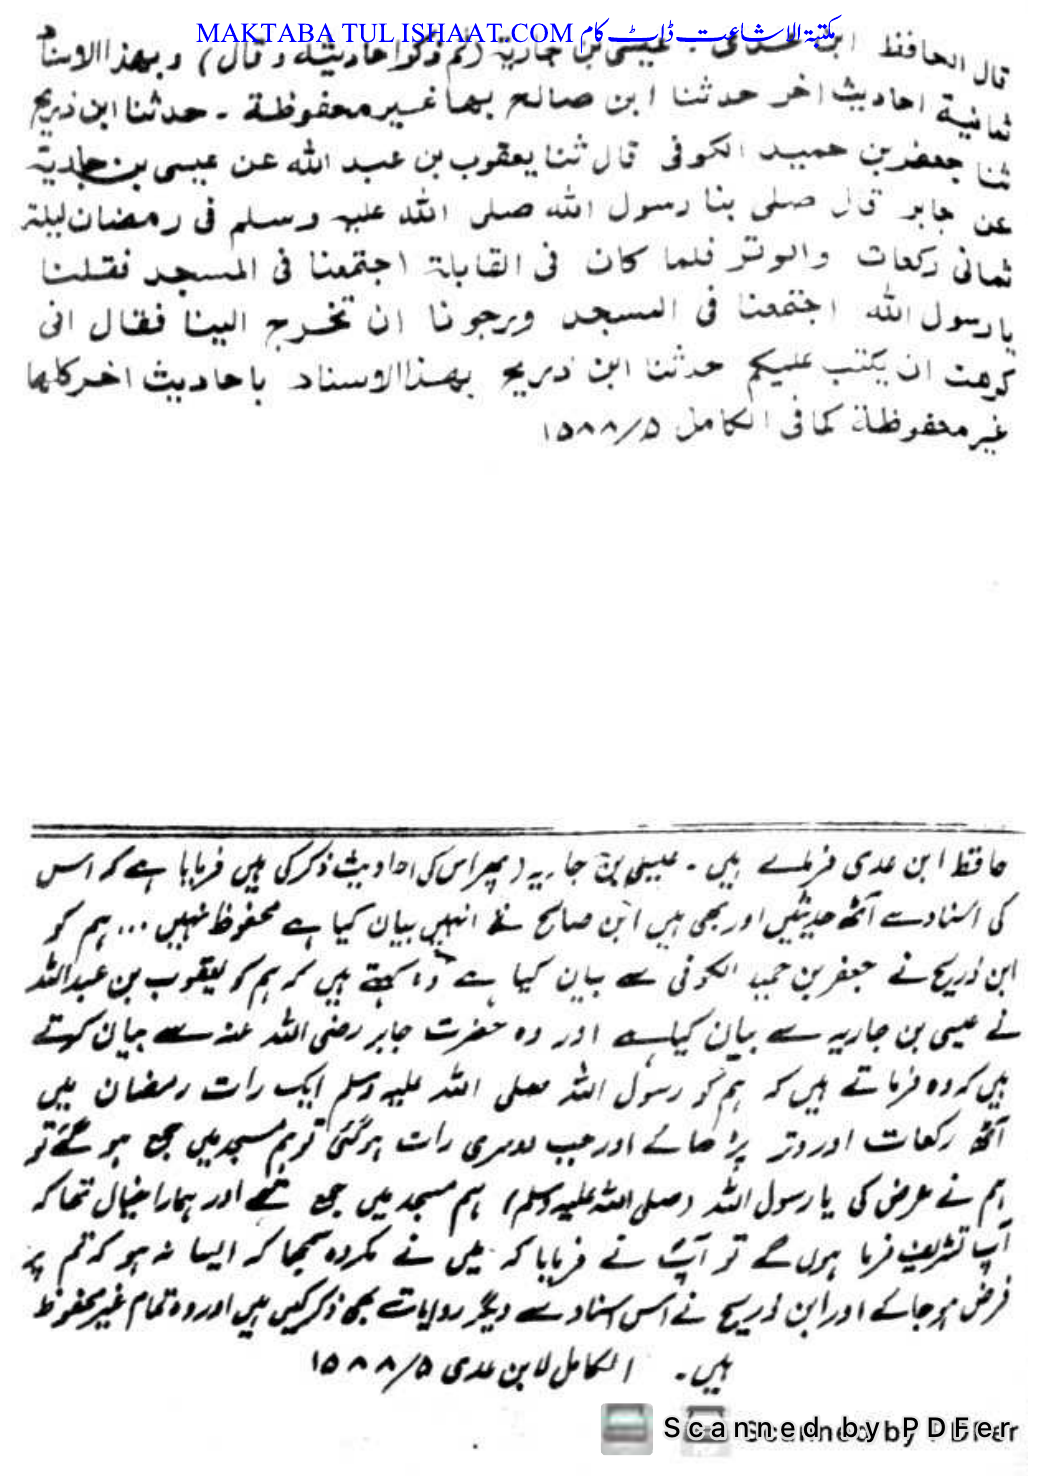 MAKTABA TUL ISHAAT.COM مکتبۃ الاشاعت ڈاٹ کام
قال الحافظ ابن عدی - عیسی بن جاریة (ثم ذکر احادیثه وقال) وبهذا الاسناد
ثمانیة احادیث اخر حدثنا ابن صالح بها غیر محفوظة - حدثنا ابن ذریح
ثنا جعفر بن حمید الکوفی قال ثنا یعقوب بن عبد الله عن عیسی بن جاریة
عن جابر قال صلی بنا رسول الله صلی الله علیه وسلم فی رمضان لیلة
ثمانی رکعات والوتر فلما کان فی القابلة اجتمعنا فی المسجد فقلنا
یا رسول الله اجتمعنا فی المسجد ورجونا ان تخرج الینا فقال انی
کرهت ان یکتب علیکم حدثنا ابن ذریح بهذا الاسناد باحادیث اخر کلها
غیر محفوظة کما فی الکامل ۱۵۸۸/۵
حافظ ابن عدی فرماتے ہیں - عیسی بن جاریہ (پھر اس کی احادیث ذکر کی ہیں فرمایا ہے کہ اس
کی اسناد سے آٹھ حدیثیں اور بھی ہیں ابن صالح نے انہیں بیان کیا ہے محفوظ نہیں ... ہم کو
ابن ذریح نے جعفر بن حمید الکوفی سے بیان کیا ہے وہ کہتے ہیں کہ ہم کو یعقوب بن عبداللہ
نے عیسی بن جاریہ سے بیان کیا ہے اور وہ حضرت جابر رضی اللہ عنہ سے بیان کرتے
ہیں کہ وہ فرماتے ہیں کہ ہم کو رسول اللہ صلی اللہ علیہ وسلم ایک رات رمضان میں
آٹھ رکعات اور وتر پڑھائے اور جب دوسری رات ہو گئی تو ہم مسجد میں جمع ہو گئے تو
ہم نے عرض کی یا رسول اللہ (صلی اللہ علیہ وسلم) ہم مسجد میں جمع تھے اور ہمارا خیال تھا کہ
آپ تشریف فرما ہوں گے تو آپؐ نے فرمایا کہ میں نے مکروہ سمجھا کہ ایسا نہ ہو کہ تم پر
فرض ہو جائے اور ابن ذریح نے اس اسناد سے دیگر روایات بھی ذکر کیں ہیں اور وہ تمام غیر محفوظ
ہیں - الکامل لابن عدی ۱۵۸۸/۵
Scanned by PDFer
Scanned by PDFer